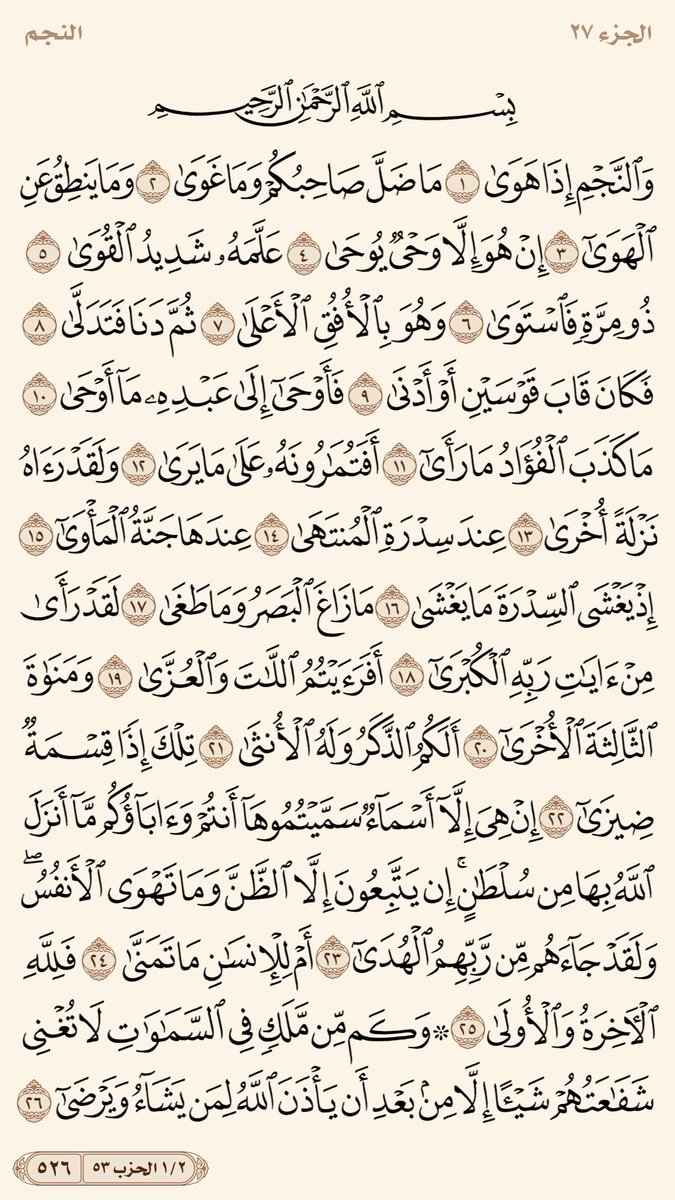 الجزء ٢٧
النجم
بِسْمِ ٱللَّهِ ٱلرَّحْمَٰنِ ٱلرَّحِيمِ
وَٱلنَّجْمِ إِذَا هَوَىٰ ١ مَا ضَلَّ صَاحِبُكُمْ وَمَا غَوَىٰ ٢ وَمَا يَنطِقُ عَنِ
ٱلْهَوَىٰٓ ٣ إِنْ هُوَ إِلَّا وَحْىٌ يُوحَىٰ ٤ عَلَّمَهُۥ شَدِيدُ ٱلْقُوَىٰ ٥
ذُو مِرَّةٍ فَٱسْتَوَىٰ ٦ وَهُوَ بِٱلْأُفُقِ ٱلْأَعْلَىٰ ٧ ثُمَّ دَنَا فَتَدَلَّىٰ ٨
فَكَانَ قَابَ قَوْسَيْنِ أَوْ أَدْنَىٰ ٩ فَأَوْحَىٰٓ إِلَىٰ عَبْدِهِۦ مَآ أَوْحَىٰ ١٠
مَا كَذَبَ ٱلْفُؤَادُ مَا رَأَىٰٓ ١١ أَفَتُمَٰرُونَهُۥ عَلَىٰ مَا يَرَىٰ ١٢ وَلَقَدْ رَءَاهُ
نَزْلَةً أُخْرَىٰ ١٣ عِندَ سِدْرَةِ ٱلْمُنتَهَىٰ ١٤ عِندَهَا جَنَّةُ ٱلْمَأْوَىٰٓ ١٥
إِذْ يَغْشَى ٱلسِّدْرَةَ مَا يَغْشَىٰ ١٦ مَا زَاغَ ٱلْبَصَرُ وَمَا طَغَىٰ ١٧ لَقَدْ رَأَىٰ
مِنْ ءَايَٰتِ رَبِّهِ ٱلْكُبْرَىٰٓ ١٨ أَفَرَءَيْتُمُ ٱللَّٰتَ وَٱلْعُزَّىٰ ١٩ وَمَنَوٰةَ
ٱلثَّالِثَةَ ٱلْأُخْرَىٰٓ ٢٠ أَلَكُمُ ٱلذَّكَرُ وَلَهُ ٱلْأُنثَىٰ ٢١ تِلْكَ إِذًا قِسْمَةٌ
ضِيزَىٰٓ ٢٢ إِنْ هِىَ إِلَّآ أَسْمَآءٌ سَمَّيْتُمُوهَآ أَنتُمْ وَءَابَآؤُكُم مَّآ أَنزَلَ
ٱللَّهُ بِهَا مِن سُلْطَٰنٍ ۚ إِن يَتَّبِعُونَ إِلَّا ٱلظَّنَّ وَمَا تَهْوَى ٱلْأَنفُسُ ۖ
وَلَقَدْ جَآءَهُم مِّن رَّبِّهِمُ ٱلْهُدَىٰٓ ٢٣ أَمْ لِلْإِنسَٰنِ مَا تَمَنَّىٰ ٢٤ فَلِلَّهِ
ٱلْءَاخِرَةُ وَٱلْأُولَىٰ ٢٥ ۞ وَكَم مِّن مَّلَكٍ فِى ٱلسَّمَٰوَٰتِ لَا تُغْنِى
شَفَٰعَتُهُمْ شَيْـًٔا إِلَّا مِنۢ بَعْدِ أَن يَأْذَنَ ٱللَّهُ لِمَن يَشَآءُ وَيَرْضَىٰٓ ٢٦
١/٢ الحزب ٥٣
٥٢٦